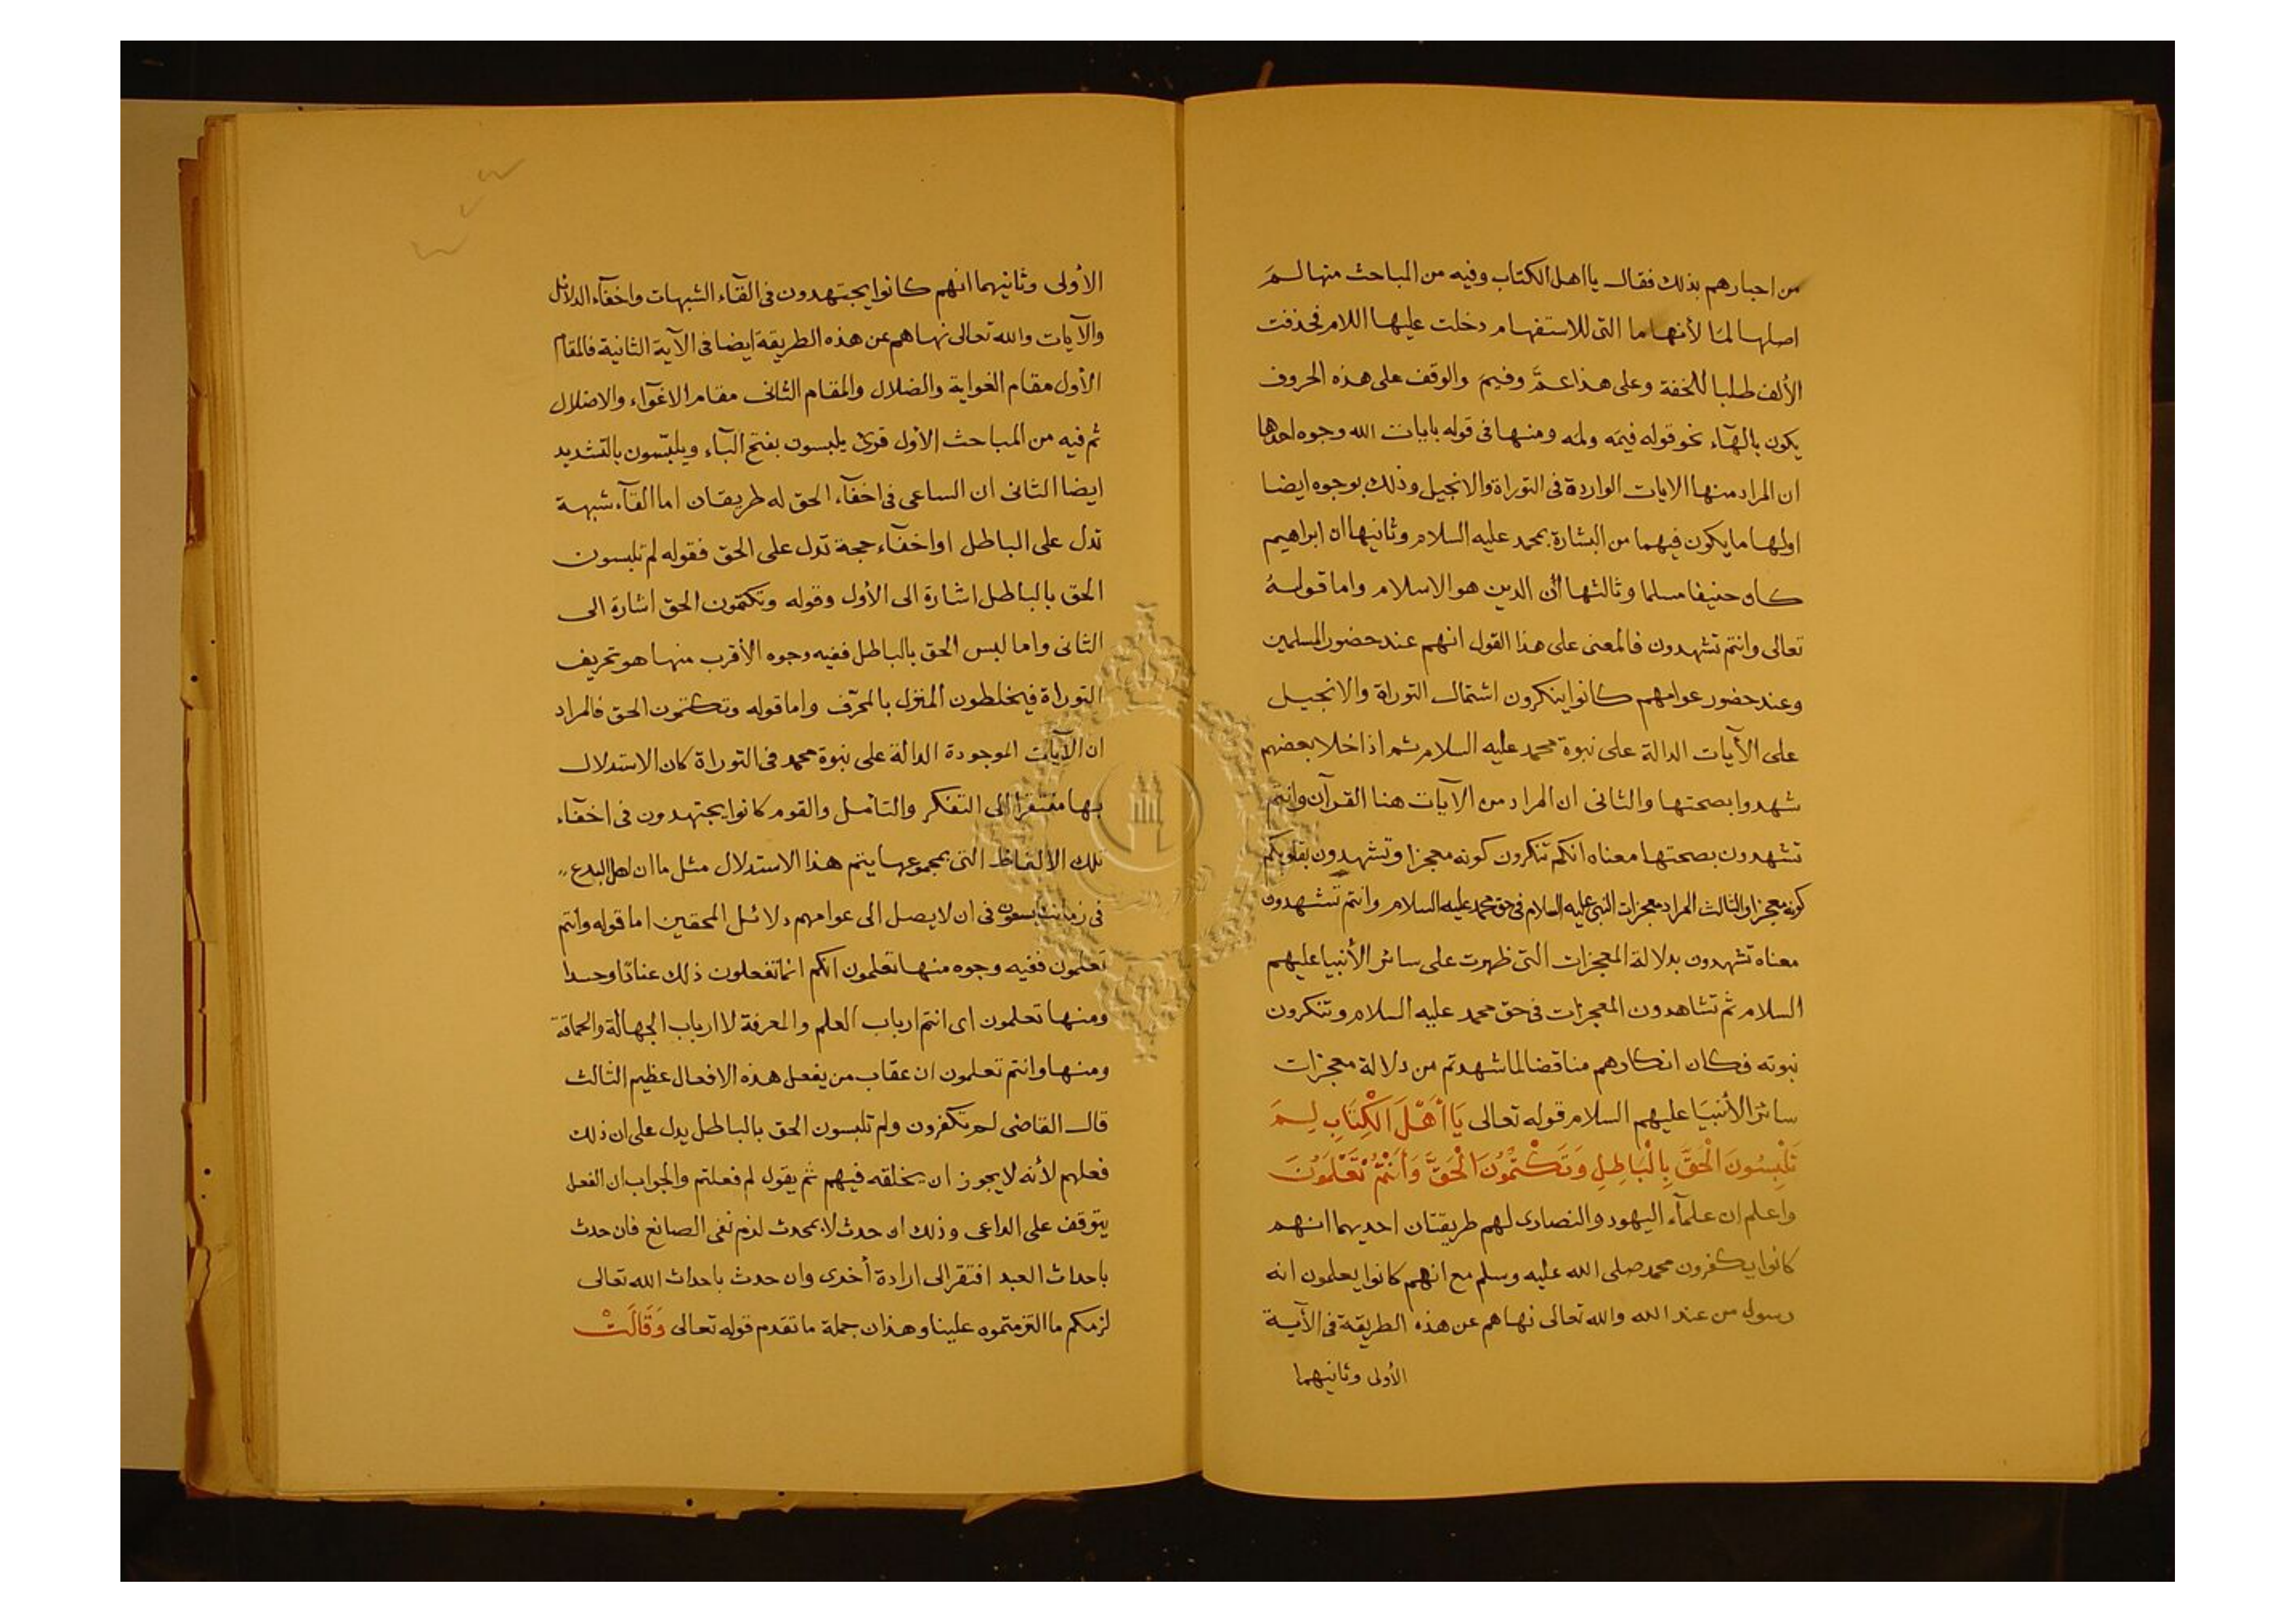 من احبارهم بذلك فقال يا اهل الكتاب وفيه من المباحث منها لمَ
اصلها لما لأنها ما التى للاستفهام دخلت عليها اللام فحذفت
الألف طلبا للخفة وعلى هذا عمَّ وفيمَ والوقف على هذه الحروف
يكون بالهآء نحو قوله فيمَه ولمَه ومنها فى قوله بايات الله وجوه احدها
ان المراد منها الايات الواردة فى التوراة والانجيل وذلك بوجوه ايضا
اولها ما يكون فيهما من البشارة بمحمد عليه السلام وثانيها ان ابراهيم
كان حنيفا مسلما وثالثها أن الدين هو الاسلام واما قولهُ
تعالى وانتم تشهدون فالمعنى على هذا القول انهم عند حضور المسلمين
وعند حضور عوامهم كانوا ينكرون اشتمال التوراة والانجيل
على الأيات الدالة على نبوة محمد عليه السلام ثم اذا خلا بعضهم
شهدوا بصحتها والثانى ان المراد من الآيات هنا القرآن وانتم
تشهدون بصحتها معناه انكم تنكرون كونه معجزا وتشهدون بقلوبكم
كونه معجزا والثالث المراد معجزات النبى عليه السلام فى حق محمد عليه السلام وانتم تشهدون
معناه تشهدون بدلالة المعجزات التى ظهرت على سائر الأنبيا عليهم
السلام ثم تشاهدون المعجزات فى حق محمد عليه السلام وتنكرون
نبوته فكان انكارهم مناقضا لما شهدتم من دلالة معجزات
سائر الأنبيَا عليهم السلام قوله تعالى يَا أَهْلَ الْكِتَابِ لِمَ
تَلْبِسُونَ الْحَقَّ بِالْبَاطِلِ وَتَكْتُمُونَ الْحَقَّ وَأَنْتُمْ تَعْلَمُونَ
واعلم ان علمآء اليهود والنصارى لهم طريقتان احديهما انهم
كانوا يكفرون محمد صلى الله عليه وسلم مع انهم كانوا يعلمون انه
رسول من عند الله والله تعالى نهاهم عن هذه الطريقة فى الآية
الأولى وثانيهما
الأولى وثانيهما انهم كانوا يجتهدون فى القآء الشبهات واخفآء الدلائل
والآيات والله تعالى نهاهم عن هذه الطريقة ايضا فى الآية الثانية فالمقام
الأول مقام الغواية والضلال والمقام الثانى مقام الاغوآء والاضلال
ثم فيه من المباحث الأول قرئ يلبسون بفتح البآء ويلبّسون بالتشديد
ايضا الثانى ان الساعى فى اخفآء الحق له طريقان اما القآء شبهة
تدل على الباطل او اخفآء حجة تدل على الحق فقوله لم تلبسون
الحق بالباطل اشارة الى الأول وقوله وتكتمون الحق اشارة الى
الثانى واما لبس الحق بالباطل ففيه وجوه الأقرب منها هو تحريف
التوراة فيخلطون المنزل بالمحرّف واما قوله وتكتمون الحق فالمراد
ان الآيات الموجودة الدالة على نبوة محمد فى التوراة كان الاستدلال
بها مفتقرا الى التفكر والتامل والقوم كانوا يجتهدون فى اخفآء
تلك الالفاظ التى بمجموعها يتم هذا الاستدلال مثل ما ان اهل البدع
فى زماننا يسعون فى ان لا يصل الى عوامهم دلائل المحقين اما قوله وانتم
تعلمون ففيه وجوه منها تعلمون انكم انما تفعلون ذلك عنادًا وحسدا
ومنها تعلمون اى انتم ارباب العلم والمعرفة لا ارباب الجهالة والحماقة
ومنها وانتم تعلمون ان عقاب من يفعل هذه الافعال عظيم الثالث
قال القاضى لم تكفرون ولم تلبسون الحق بالباطل يدل على ان ذلك
فعلهم لأنه لا يجوز ان يخلقه فيهم ثم يقول لم فعلتم والجواب ان الفعل
يتوقف على الداعى وذلك ان حدث لا بمحدث لزم نفى الصانع فان حدث
باحداث العبد افتقر الى ارادة أخرى وان حدث باحداث الله تعالى
لزمكم ما التزمتموه علينا وهذان جملة ما تقدم قوله تعالى وَقَالَتْ